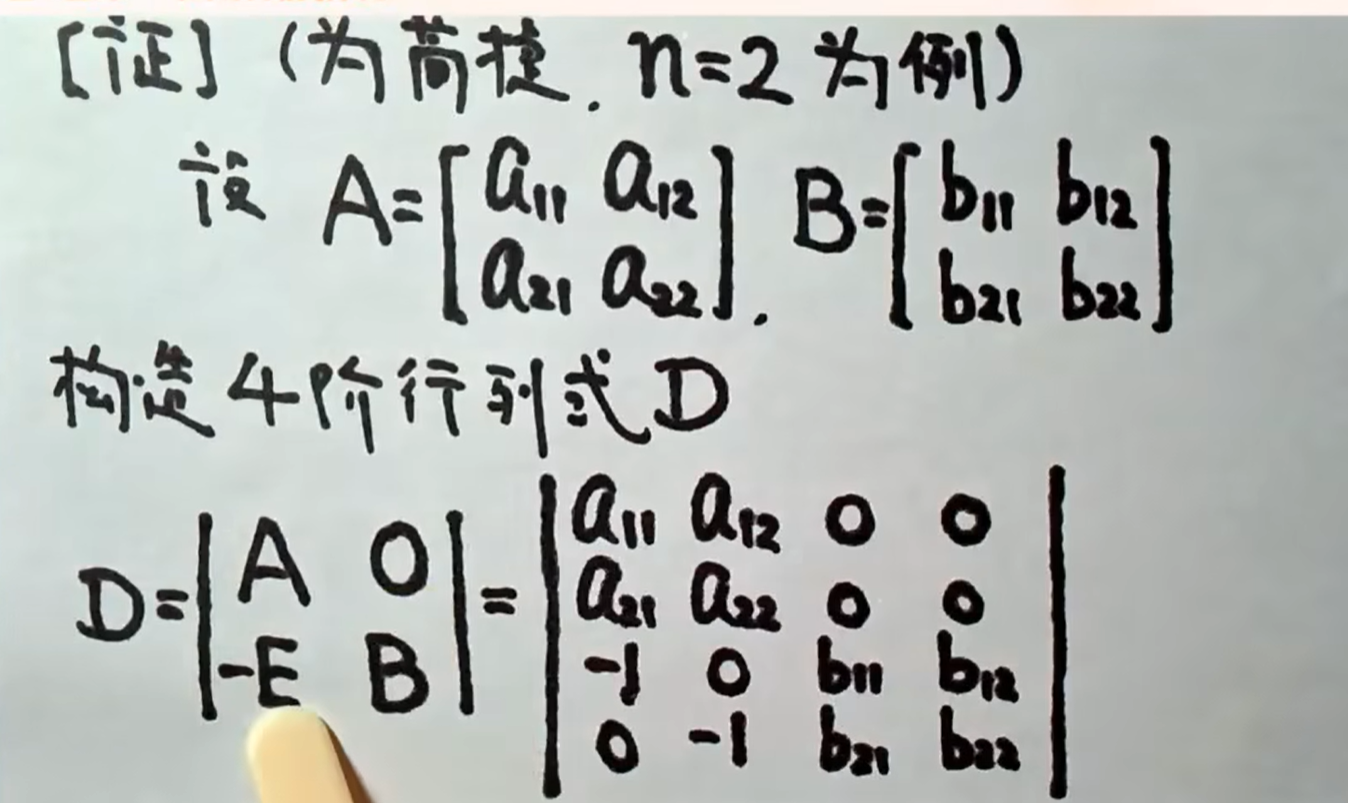 [证] (为简捷. n=2 为例)
设 A=[a11 a12
a21 a22]. B=[b11 b12
b21 b22]
构造4阶行列式D
D=|A O
-E B|=|a11 a12 0 0
a21 a22 0 0
-1 0 b11 b12
0 -1 b21 b22|